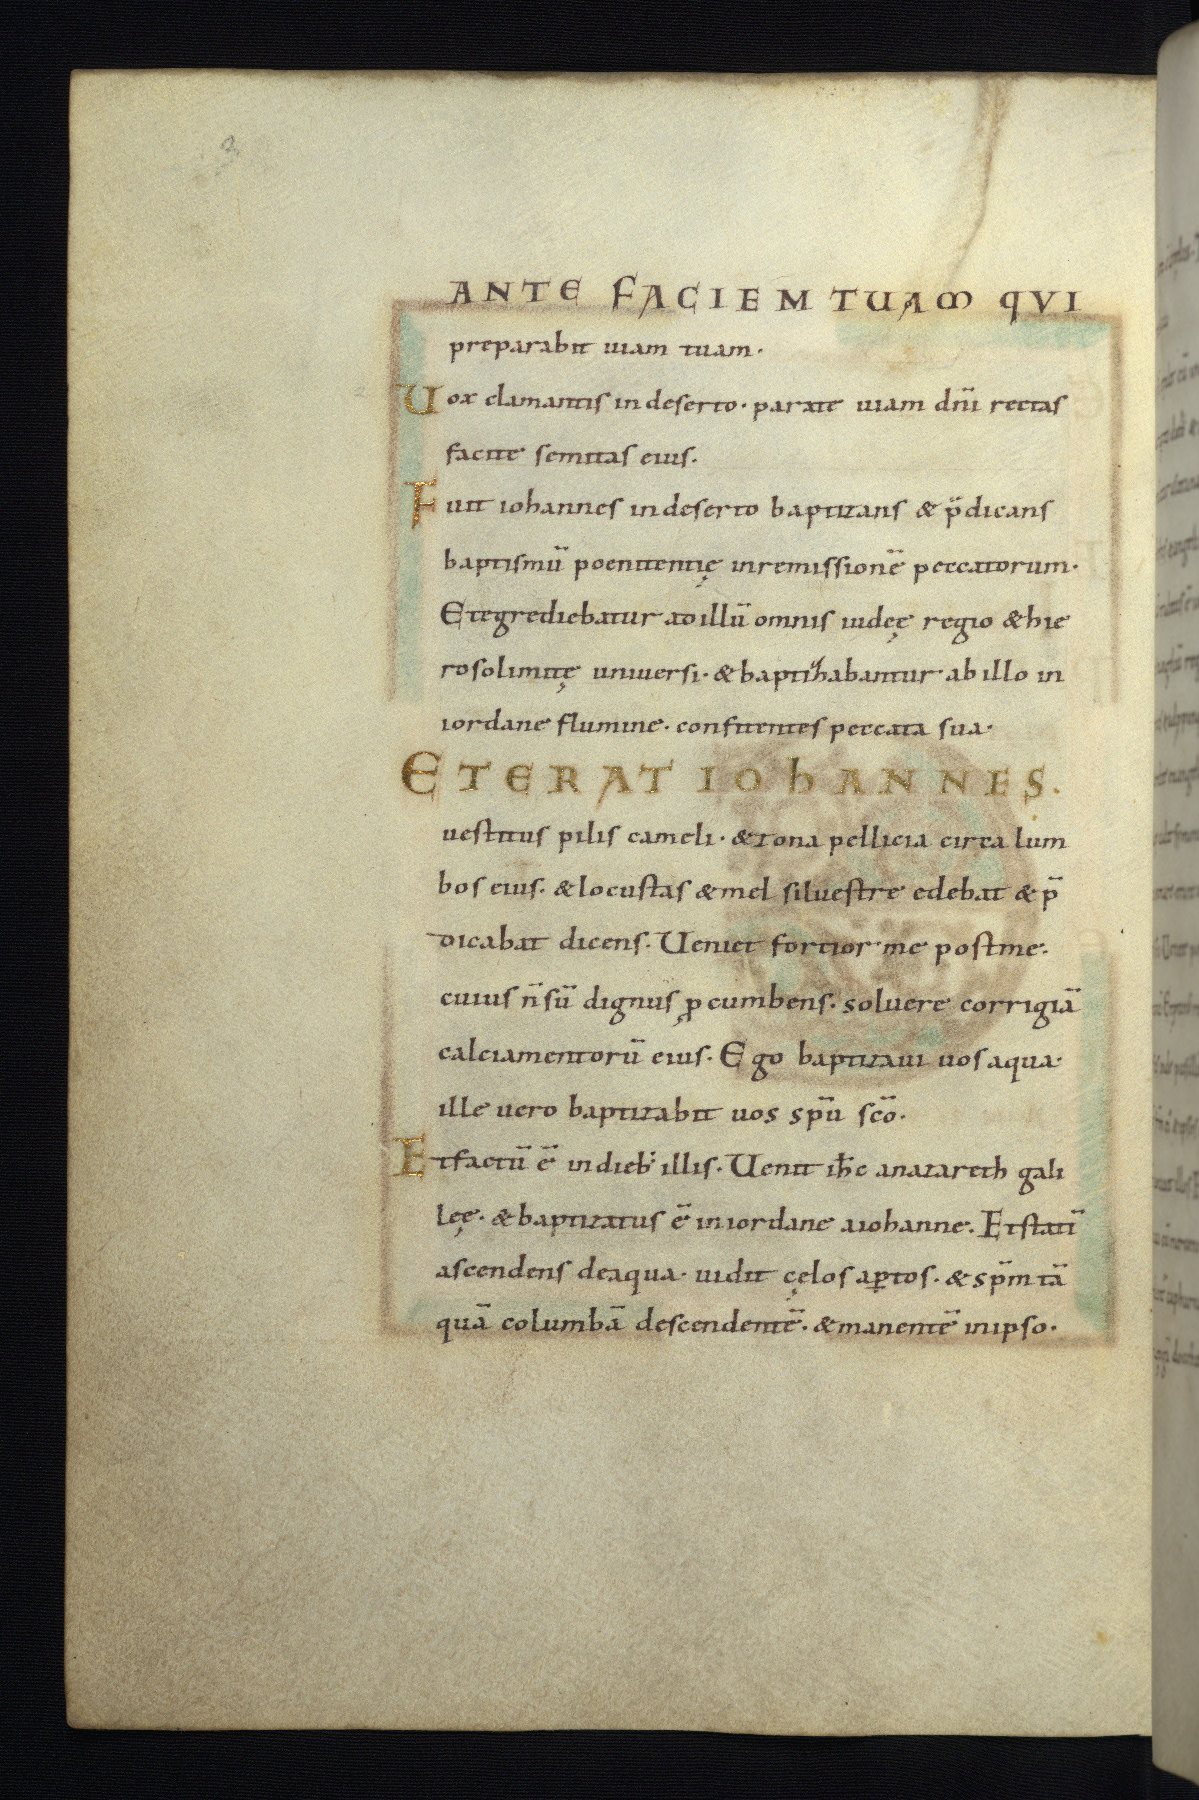 3
ANTE FACIEM TUAM QVI
preparabit uiam tuam·
Uox clamantis in deserto· parate uiam dnı̄ rectas
facite semitas eius·
Fuit iohannes in deserto baptizans & p̄dicans
baptismū poenitentię in remissionē peccatorum·
Et egrediebatur ad illū omnis iudeę regio & hie
rosolimitę uniuersi· & baptizabantur ab illo in
iordane flumine· confitentes peccata sua·
ET ERAT IOhANNES.
uestitus pilis cameli· & zona pellicia circa lum
bos eius· & locustas & mel siluestre edebat & p̄
dicabat dicens· Ueniet fortior me post me·
cuius n̄ sū dignus ꝓcumbens· soluere corrigiā
calciamentorū eius· Ego baptizaui uos aqua·
ille uero baptizabit uos spū scō·
Et factū ē in dieb; illis· Uenit ih̄c a nazareth gali
leę· & baptizatus ē in iordane a iohanne· Et statī
ascendens de aqua· uidit cęlos aꝑtos· & spm̄ tā
quā columbā descendentē· & manentē in ipso·